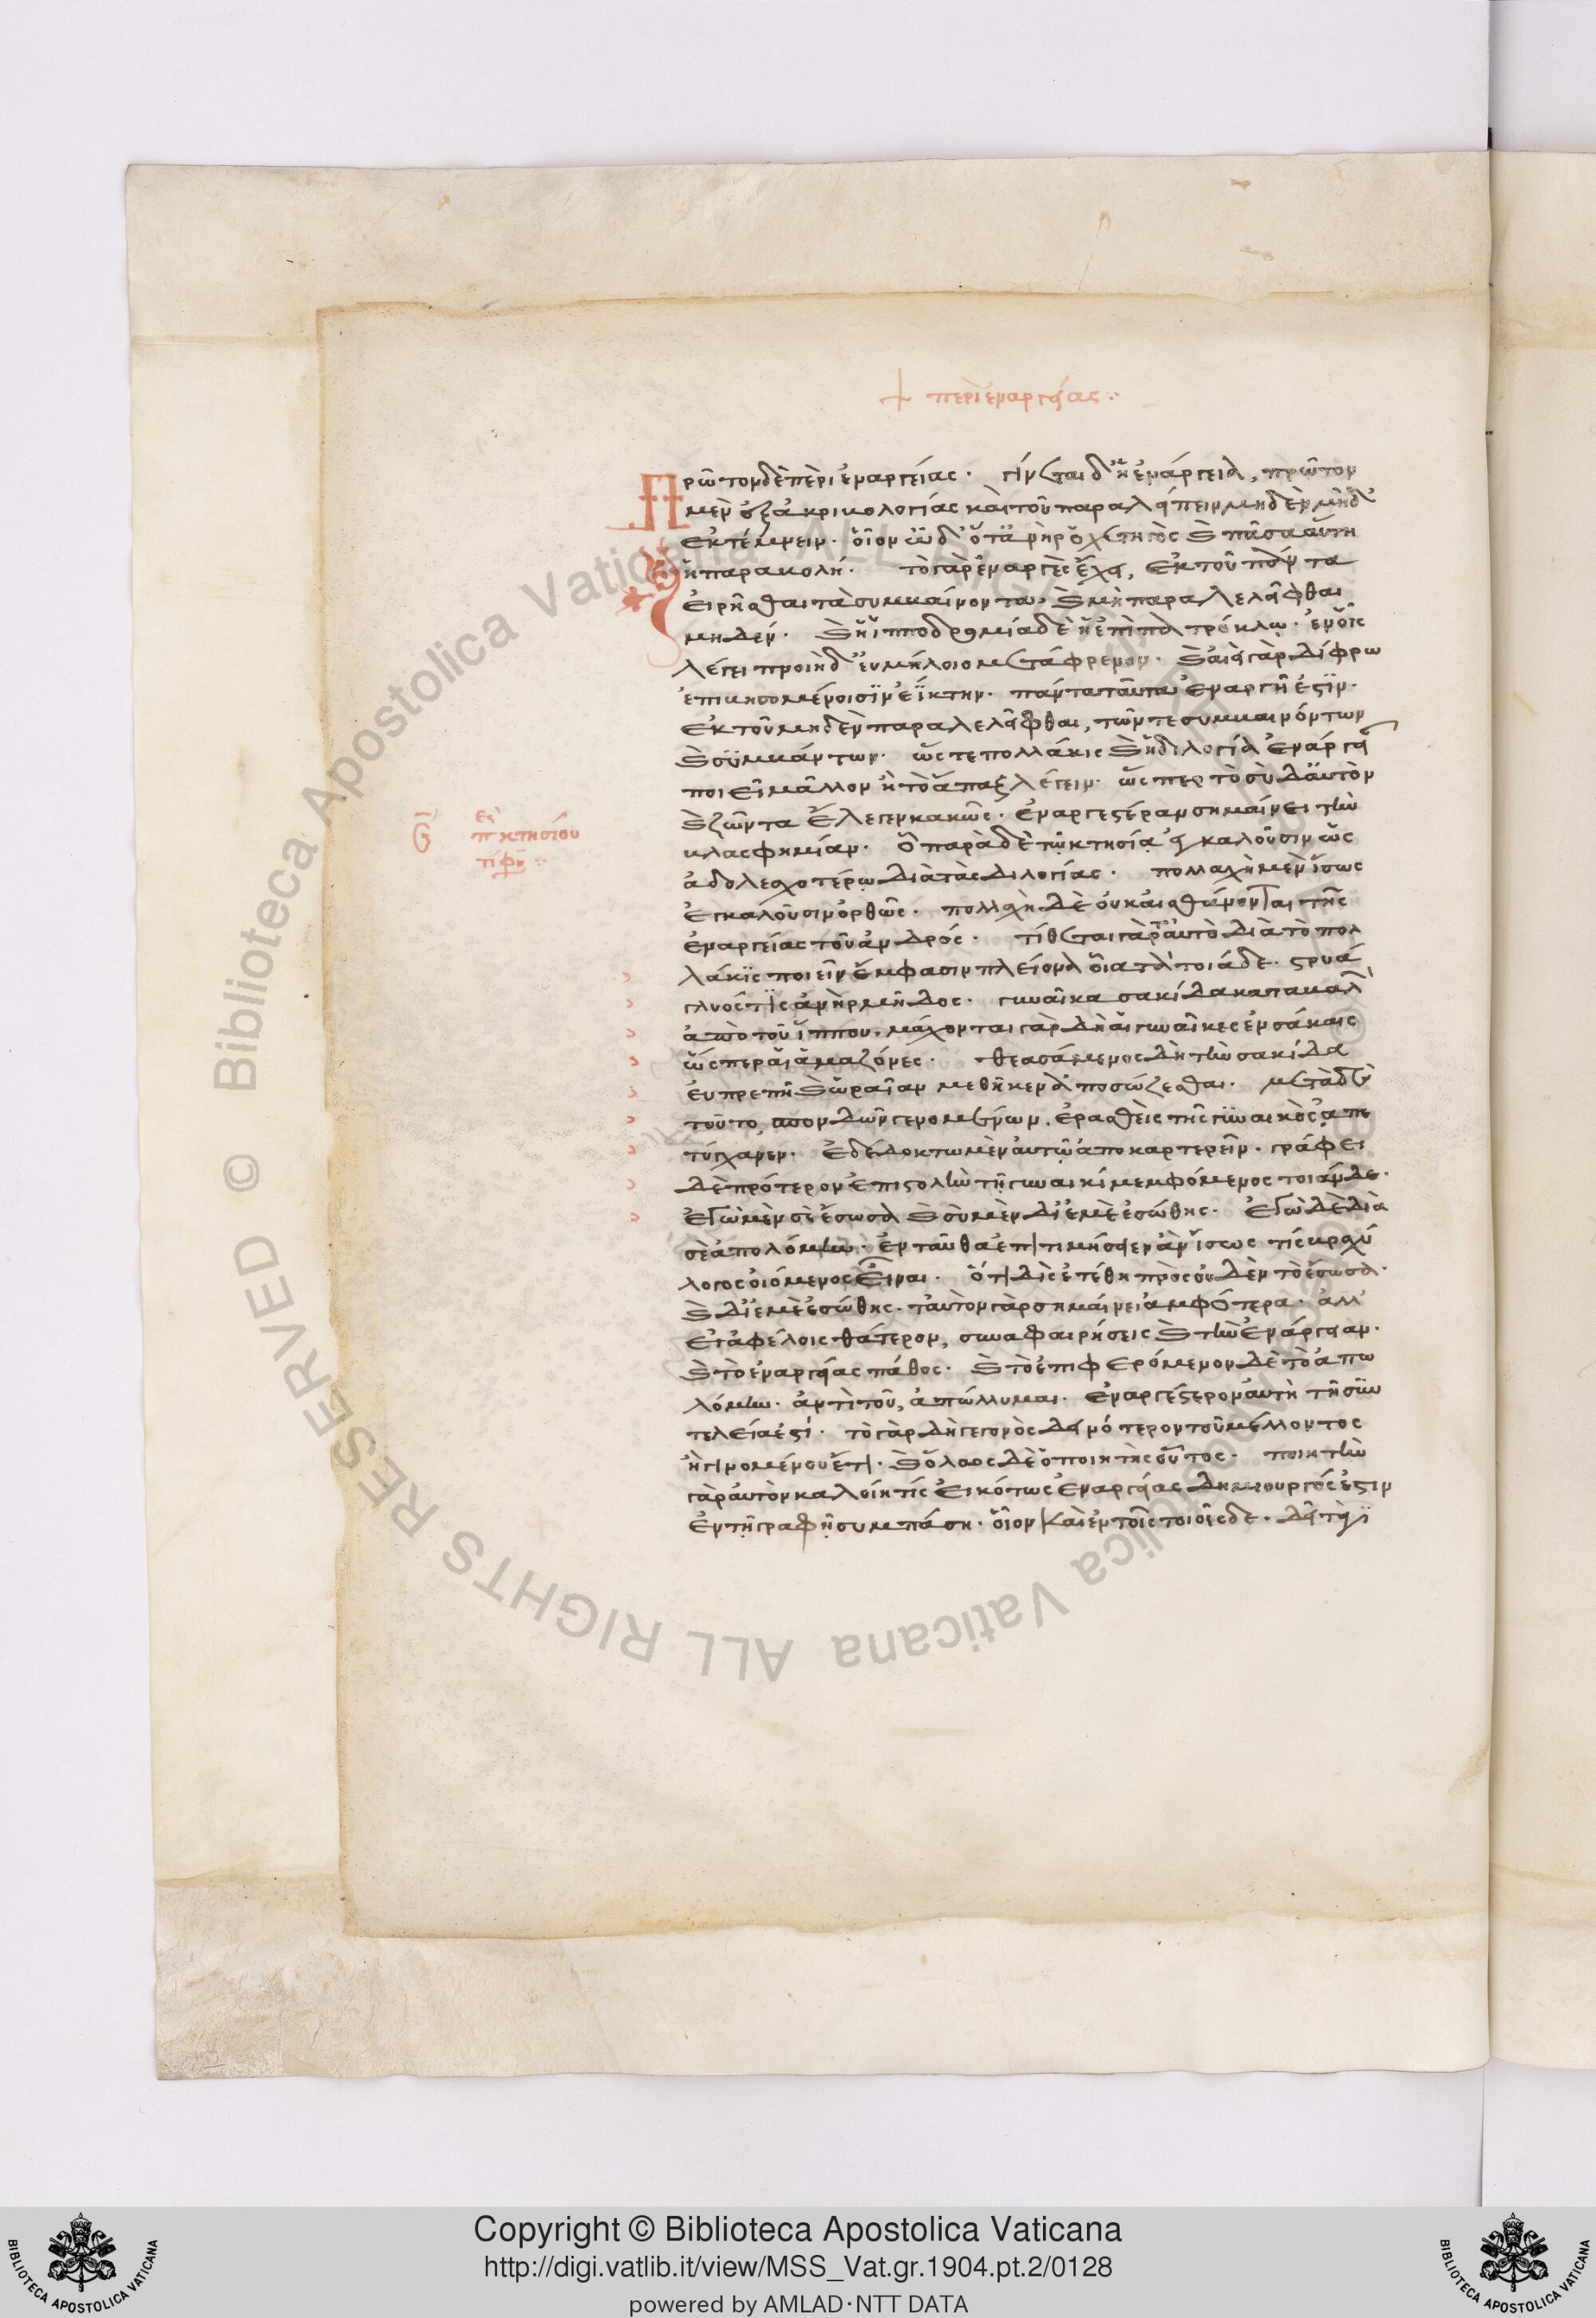 + περὶ ἐναργείας :·
Πρῶτον δὲ περὶ ἐναργείας · γίνεται δ' ἡ ἐνάργεια, πρῶτον
μὲν ἐξ ἀκριβολογίας καὶ τοῦ παραλείπειν μηδὲν μηδ'
ἐκτέμνειν · οἷον ὡς δ' ὅτ' ἀνὴρ ὀχετηγὸς καὶ πᾶσα αὕτη
ἡ παραβολή · τὸ γὰρ ἐναργὲς ἔχει, ἐκ τοῦ πάντα
εἰρῆσθαι τὰ συμβαίνοντα · καὶ μὴ παραλελεῖφθαι
μηδέν · καὶ ἡ ἱπποδρομία δὲ ἡ ἐπὶ πατρόκλῳ · ἐν οἷς
λέγει πνοιῇ δ' εὐμήλοιο μετάφρενον · καὶ αἰεὶ γὰρ δίφρω
ἐπιβησομένοισιν ἐίκτην · πάντα ταῦτα ἐναργῆ ἐστιν ·
ἐκ τοῦ μηδὲν παραλελεῖφθαι, τῶν τε συμβαινόντων
καὶ συμβάντων · ὥστε πολλάκις καὶ ἡ διλογία ἐνάργει
ποιεῖ μᾶλλον ἢ τὸ ἅπαξ λέγειν · ὥσπερ τὸ σὺ δ' αὐτὸν
καὶ ζῶντα ἔλεγεν κακῶς · ἐναργεστέραν σημαίνει τὴν
βλασφημίαν · ὃ παρὰ δὲ τῷ κτησίᾳ ἐγκαλοῦσιν ὡς
ἀδολεσχοτέρω διὰ τὰς διλογίας · πολλαχῆ μὲν ἴσως
ἐγκαλοῦσιν ὀρθῶς · πολλαχῆ δὲ οὐκ αἰσθάνονται τῆς
ἐναργείας τοῦ ἀνδρός · τίθεται γὰρ ταὐτὸ διὰ τὸ πολ
λάκις ποιεῖν ἔμφασιν πλείονα οἷα τὰ τοιάδε · στρυά
γλυός τις ἀνὴρ μῆδος · γυναῖκα σακίδα καταβαλ
ἀπὸ τοῦ ἵππου · μάχονται γὰρ δὴ αἱ γυναῖκες ἐν σάκαις
ὥσπερ αἱ ἀμαζόνες · θεασάμενος δὴ τὴν σακίδα
εὐπρεπῆ καὶ ὡραῖαν μεθῆκεν ἀποσώζεσθαι · μετὰ δὲ
τοῦτο σπονδῶν γενομένων, ἐρασθεὶς τῆς γυναικὸς ἀπε
τύγχανεν · ἐδέδοκτο μὲν αὐτῷ ἀποκαρτερεῖν · γράφει
δὲ πρότερον ἐπιστολὴν τῇ γυναικὶ μεμφόμενος τοιάνδε ·
ἐγὼ μὲν σὲ ἔσωσα καὶ σὺ μὲν δι' ἐμὲ ἐσώθης · ἐγὼ δὲ διὰ
σὲ ἀπολόμην · ἐνταῦθα ἐπιτιμήσειεν ἂν ἴσως τίς βραχύ
λογος οἰόμενος εἶναι · ὅτι δὶς ἐτέθη πρὸς οὐδὲν τὸ ἔσωσα ·
καὶ δι' ἐμὲ ἐσώθης · ταὐτὸν γὰρ σημαίνει ἀμφότερα · ἀλλ'
εἰ ἀφέλοις θάτερον, συναφαιρήσεις καὶ τὴν ἐνάργειαν ·
καὶ τὸ ἐναργείας πάθος · καὶ τὸ ἐπιφερόμενον δὲ τὸ ἀπω
λόμην · ἀντὶ τοῦ, ἀπώλλυμαι · ἐναργέστερον αὐτὴ τῇ συν
τελείᾳ ἐστί · τὸ γὰρ δὴ γεγονὸς δεινότερον τοῦ μέλλοντος
ἢ γινομένου ἔτι · καὶ ὅλως δὲ ὁ ποιητὴς οὗτος · ποιητὴν
γὰρ αὐτὸν καλοίη τίς εἰκότως ἐναργείας δημιουργός ἐστιν
ἐν τῇ γραφῇ συμπάσῃ · οἷον καὶ ἐν τοῖς τοιοῖσδε · δεῖ τὰ
Copyright © Biblioteca Apostolica Vaticana
http://digi.vatlib.it/view/MSS_Vat.gr.1904.pt.2/0128
powered by AMLAD·NTT DATA